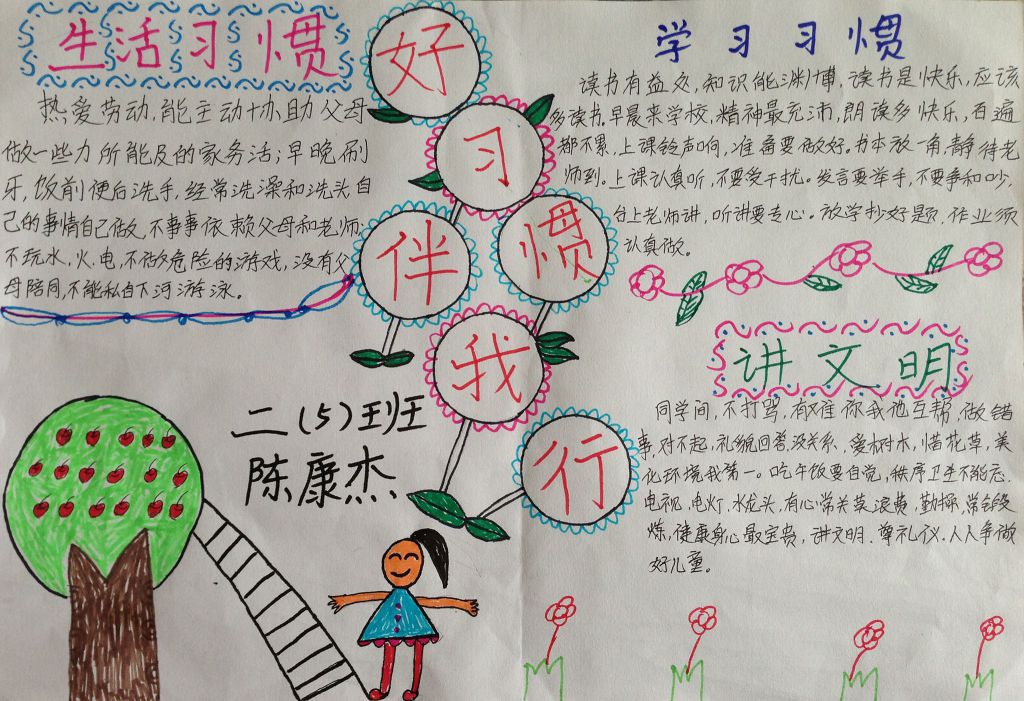 生活习惯
热爱劳动,能主动协助父母
做一些力所能及的家务活;早晚刷
牙,饭前便后洗手,经常洗澡和洗头自
己的事情自己做,不事事依赖父母和老师;
不玩水,火,电,不做危险的游戏,没有父
母陪同,不能私自下河游泳。
好
习
惯
伴
我
行
二(5)班
陈康杰
学习习惯
读书有益处,知识能渊博,读书是快乐,应该
多读书,早晨来学校,精神最充沛,朗读多快乐,百遍
都不累,上课铃声响,准备要做好。书本放一角,静待老
师到。上课认真听,不要受干扰。发言要举手,不要争和吵,
台上老师讲,听讲要专心。放学抄好题,作业须
认真做。
讲文明
同学间,不打骂,有难你我他互帮,做错
事,对不起,礼貌回答没关系,爱树木,惜花草,美
化环境我第一。吃午饭要自觉,秩序卫生不能忘,
电视,电灯,水龙头,有心常关莫浪费,勤操,常锻
炼,健康身心最宝贵,讲文明.尊礼仪.人人争做
好儿童。